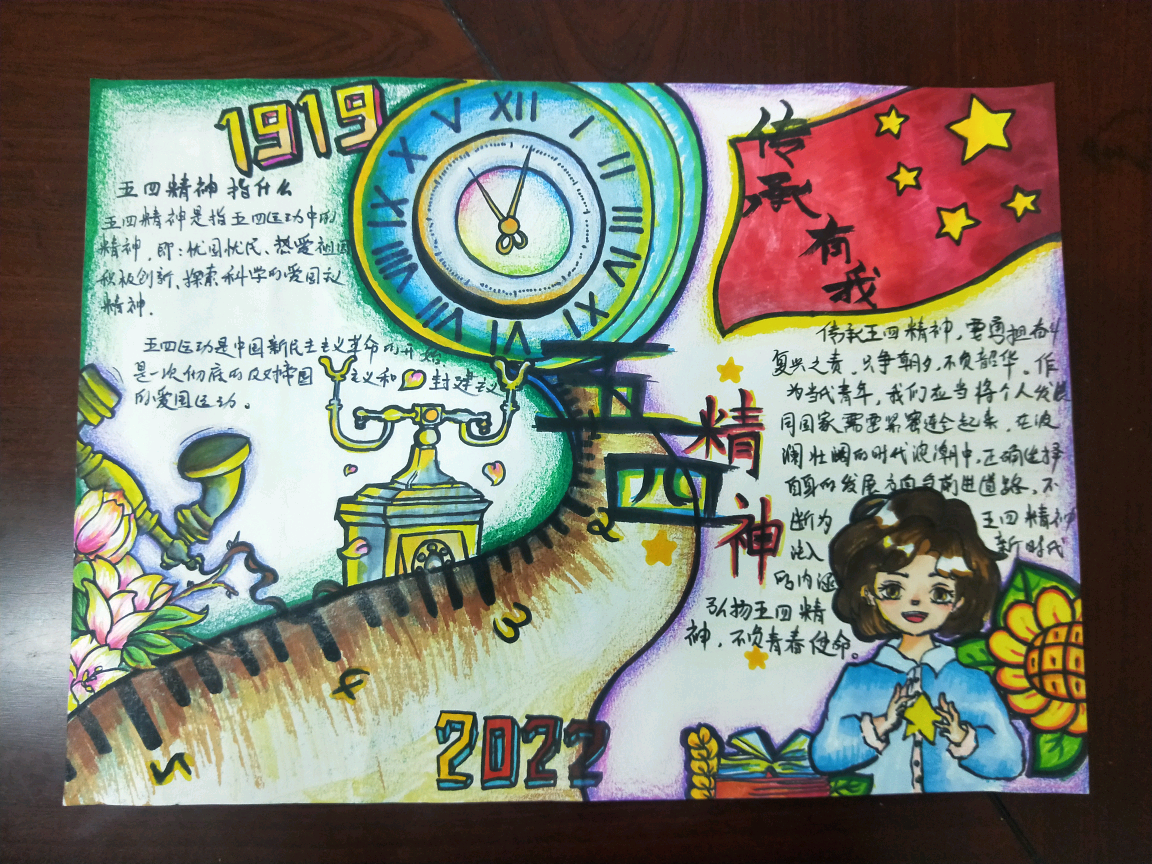 1919
五四精神指什么
五四精神是指五四运动中的
精神，即：忧国忧民、热爱祖国
积极创新、探索科学的爱国主
精神．
五四运动是中国新民主主义革命的开始
是一次彻底的反对帝国主义和封建主义
的爱国运动。
XII
I
II
III
IIII
XI
VI
VII
VIII
IX
X
V
五四
精神
传承有我
传承五四精神，要勇担奋斗
复兴之责，只争朝夕，不负韶华。作
为当代青年，我们应当将个人发展
同国家需要紧密连合起来，在波
澜壮阔的时代浪潮中，正确选择
自身的发展方向与前进道路，不
断为 五四精神
注入 新时代
的内涵
弘扬五四精
神，不负青春使命。
2
3
4
5
2022